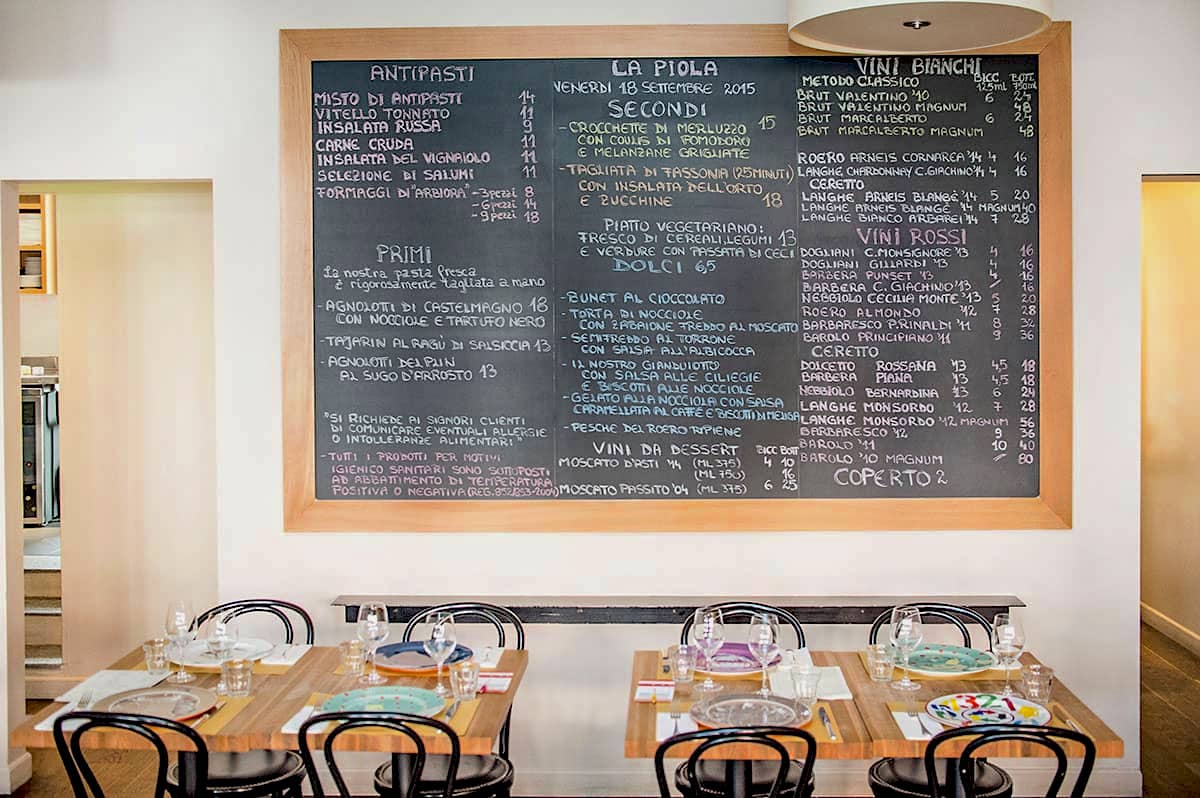 ANTIPASTI
MISTO DI ANTIPASTI 14
VITELLO TONNATO 11
INSALATA RUSSA 9
CARNE CRUDA 11
INSALATA DEL VIGNAIOLO 11
SELEZIONE DI SALUMI 11
FORMAGGI DI "ARBIORA" - 3 pezzi 8
- 6 pezzi 14
- 9 pezzi 18
PRIMI
La nostra pasta fresca
è rigorosamente tagliata a mano
- AGNOLOTTI DI CASTELMAGNO 18
CON NOCCIOLE E TARTUFO NERO
- TAJARIN AL RAGÚ DI SALSICCIA 13
- AGNOLOTTI DEL PLIN
AL SUGO D'ARROSTO 13
"SI RICHIEDE AI SIGNORI CLIENTI
DI COMUNICARE EVENTUALI ALLERGIE
O INTOLLERANZE ALIMENTARI"
- TUTTI I PRODOTTI PER MOTIVI
IGIENICO SANITARI SONO SOTTOPOSTI
AD ABBATTIMENTO DI TEMPERATURA
POSITIVA O NEGATIVA (REG. 852/853-2004)
LA PIOLA
VENERDÌ 18 SETTEMBRE 2015
SECONDI
- CROCCHETTE DI MERLUZZO 15
CON COULIS DI POMODORO
E MELANZANE GRIGLIATE
- TAGLIATA DI FASSONIA (25 MINUTI)
CON INSALATA DELL'ORTO
E ZUCCHINE 18
PIATTO VEGETARIANO:
FRESCO DI CEREALI, LEGUMI 13
E VERDURE CON PASSATA DI CECI
DOLCI 6,5
- BUNET AL CIOCCOLATO
- TORTA DI NOCCIOLE
CON ZABAIONE FREDDO AL MOSCATO
- SEMIFREDDO AL TORRONE
CON SALSA ALL'ALBICOCCA
- IL NOSTRO GIANDUIOTTO
CON SALSA ALLE CILIEGIE
E BISCOTTI ALLE NOCCIOLE
- GELATO ALLA NOCCIOLA CON SALSA
CARAMELLATA AL CAFFÉ E BISCOTTI DI MELIGA
- PESCHE DEL ROERO RIPIENE
VINI DA DESSERT BICC BOTT
MOSCATO D'ASTI '14 (ML 375) 4 10
(ML 750) 16
MOSCATO PASSITO '04 (ML 375) 6 25
VINI BIANCHI
METODO CLASSICO BICC. 125ml BOTT. 750ml
BRUT VALENTINO '10 6 24
BRUT VALENTINO MAGNUM 48
BRUT MARCALBERTO 6 24
BRUT MARCALBERTO MAGNUM 48
ROERO ARNEIS CORNAREA '14 4 16
LANGHE CHARDONNAY C. GIACHINO '14 4 16
CERETTO
LANGHE ARNEIS BLANGÈ '14 5 20
LANGHE ARNEIS BLANGÈ '14 MAGNUM 40
LANGHE BIANCO ARBAREI '14 7 28
VINI ROSSI
DOGLIANI C. MONSIGNORE '13 4 16
DOGLIANI GILLARDI '13 4 16
BARBERA PUNSET '13 4 16
BARBERA C. GIACHINO '13 16
NEBBIOLO CECILIA MONTE '13 5 20
ROERO ALMONDO '12 7 28
BARBARESCO P. RINALDI '11 8 32
BAROLO PRINCIPIANO '11 9 36
CERETTO
DOLCETTO ROSSANA '13 4,5 18
BARBERA PIANA '13 4,5 18
NEBBIOLO BERNARDINA '13 6 24
LANGHE MONSORDO '12 7 28
LANGHE MONSORDO '12 MAGNUM 56
BARBARESCO '12 9 36
BAROLO '11 10 40
BAROLO '10 MAGNUM 80
COPERTO 2